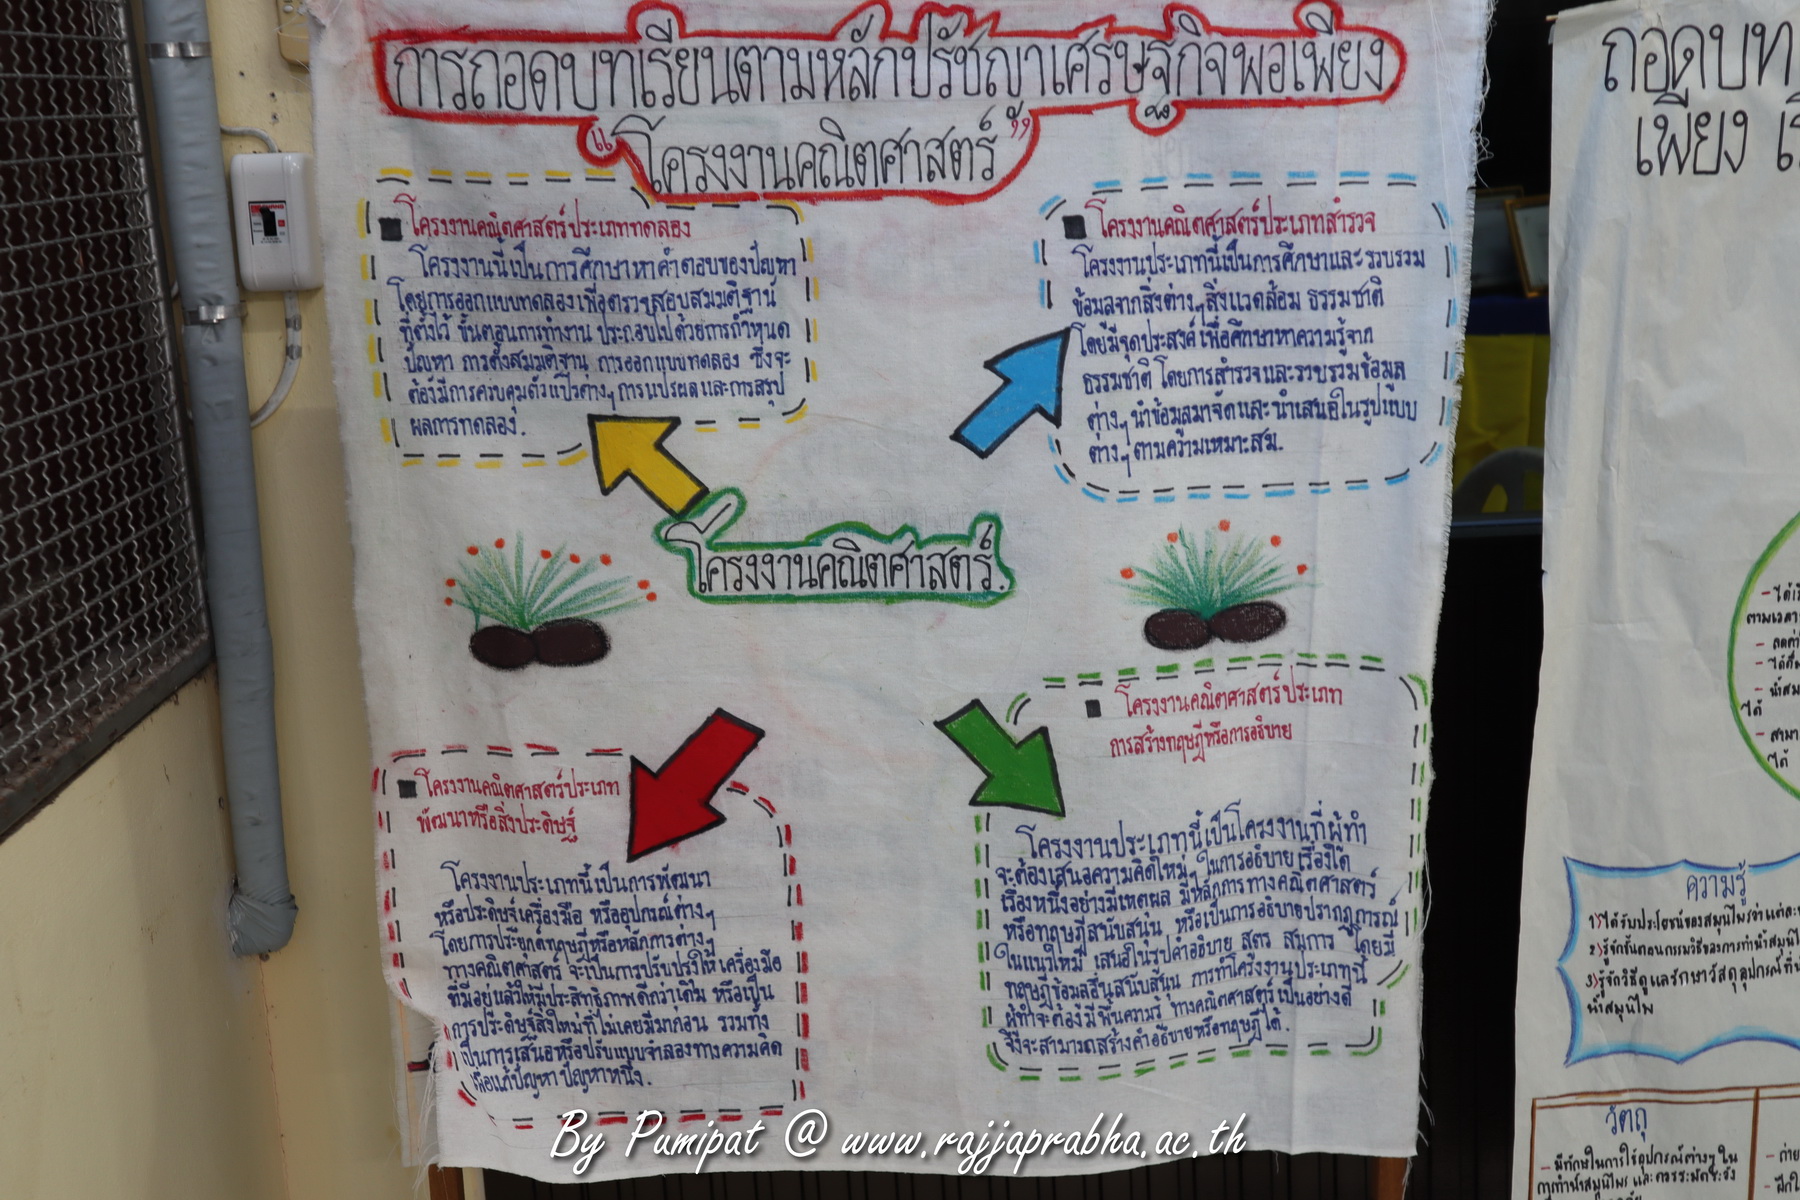 การถอดบทเรียนตามหลักปรัชญาเศรษฐกิจพอเพียง
"โครงงานคณิตศาสตร์"
โครงงานคณิตศาสตร์ประเภททดลอง
โครงงานนี้เป็นการศึกษาหาคำตอบของปัญหา
โดยการออกแบบทดลองเพื่อตรวจสอบสมมติฐาน
ที่ตั้งไว้ ขั้นตอนการทำงาน ประกอบไปด้วยการกำหนด
ปัญหา การตั้งสมมติฐาน การออกแบบทดลอง ซึ่งจะ
ต้องมีการควบคุมตัวแปรต่างๆ การแปรผลและการสรุป
ผลการทดลอง.
โครงงานคณิตศาสตร์ประเภทสำรวจ
โครงงานประเภทนี้เป็นการศึกษาและรวบรวม
ข้อมูลจากสิ่งต่างๆ สิ่งแวดล้อม ธรรมชาติ
โดยมีจุดประสงค์เพื่อศึกษาหาความรู้จาก
ธรรมชาติ โดยการสำรวจและรวบรวมข้อมูล
ต่างๆ นำข้อมูลมาจัดและนำเสนอในรูปแบบ
ต่างๆ ตามความเหมาะสม.
โครงงานคณิตศาสตร์.
โครงงานคณิตศาสตร์ประเภท
พัฒนาหรือสิ่งประดิษฐ์
โครงงานประเภทนี้เป็นการพัฒนา
หรือประดิษฐ์เครื่องมือ หรืออุปกรณ์ต่างๆ
โดยการประยุกต์ทฤษฎีหรือหลักการต่างๆ
ทางคณิตศาสตร์ จะเป็นการปรับปรุงให้เครื่องมือ
ที่มีอยู่แล้วให้มีประสิทธิภาพดีกว่าเดิม หรือเป็น
การประดิษฐ์สิ่งใหม่ที่ไม่เคยมีมาก่อน รวมทั้ง
เป็นการเสนอหรือปรับแบบจำลองทางความคิด
เพื่อแก้ปัญหา ปัญหาหนึ่ง.
โครงงานคณิตศาสตร์ประเภท
การสร้างทฤษฎีหรือการอธิบาย
โครงงานประเภทนี้เป็นโครงงานที่ผู้ทำ
จะต้องเสนอความคิดใหม่ๆ ในการอธิบายเรื่องใด
เรื่องหนึ่งอย่างมีเหตุผล มีหลักการทางคณิตศาสตร์
หรือทฤษฎีสนับสนุน หรือเป็นการอธิบายปรากฏการณ์
ในแนวใหม่ เสนอในรูปคำอธิบาย สูตร สมการ โดยมี
ทฤษฎีข้อมูลอื่นสนับสนุน การทำโครงงานประเภทนี้
ผู้ทำจะต้องมีพื้นความรู้ ทางคณิตศาสตร์เป็นอย่างดี
จึงจะสามารถสร้างคำอธิบายหรือทฤษฎีได้.
ถอดบท
เพียง เ
- ได้เ
- สามา
ได้
ความรู้
1) ได้รับประโยชน์ของสมุนไพรว่าแต่ละ
2) รู้จักขั้นตอนกรรมวิธีของการทำน้ำสมุนไ
3) รู้จักวิธีดูแลรักษาวัสดุอุปกรณ์ที่
น้ำสมุนไพ
วัตถุ
- มีทักษะในการใช้อุปกรณ์ต่างๆ ใน
- ถ่าย
- ฝึกใ
By Pumipat @ www.rajjaprabha.ac.th